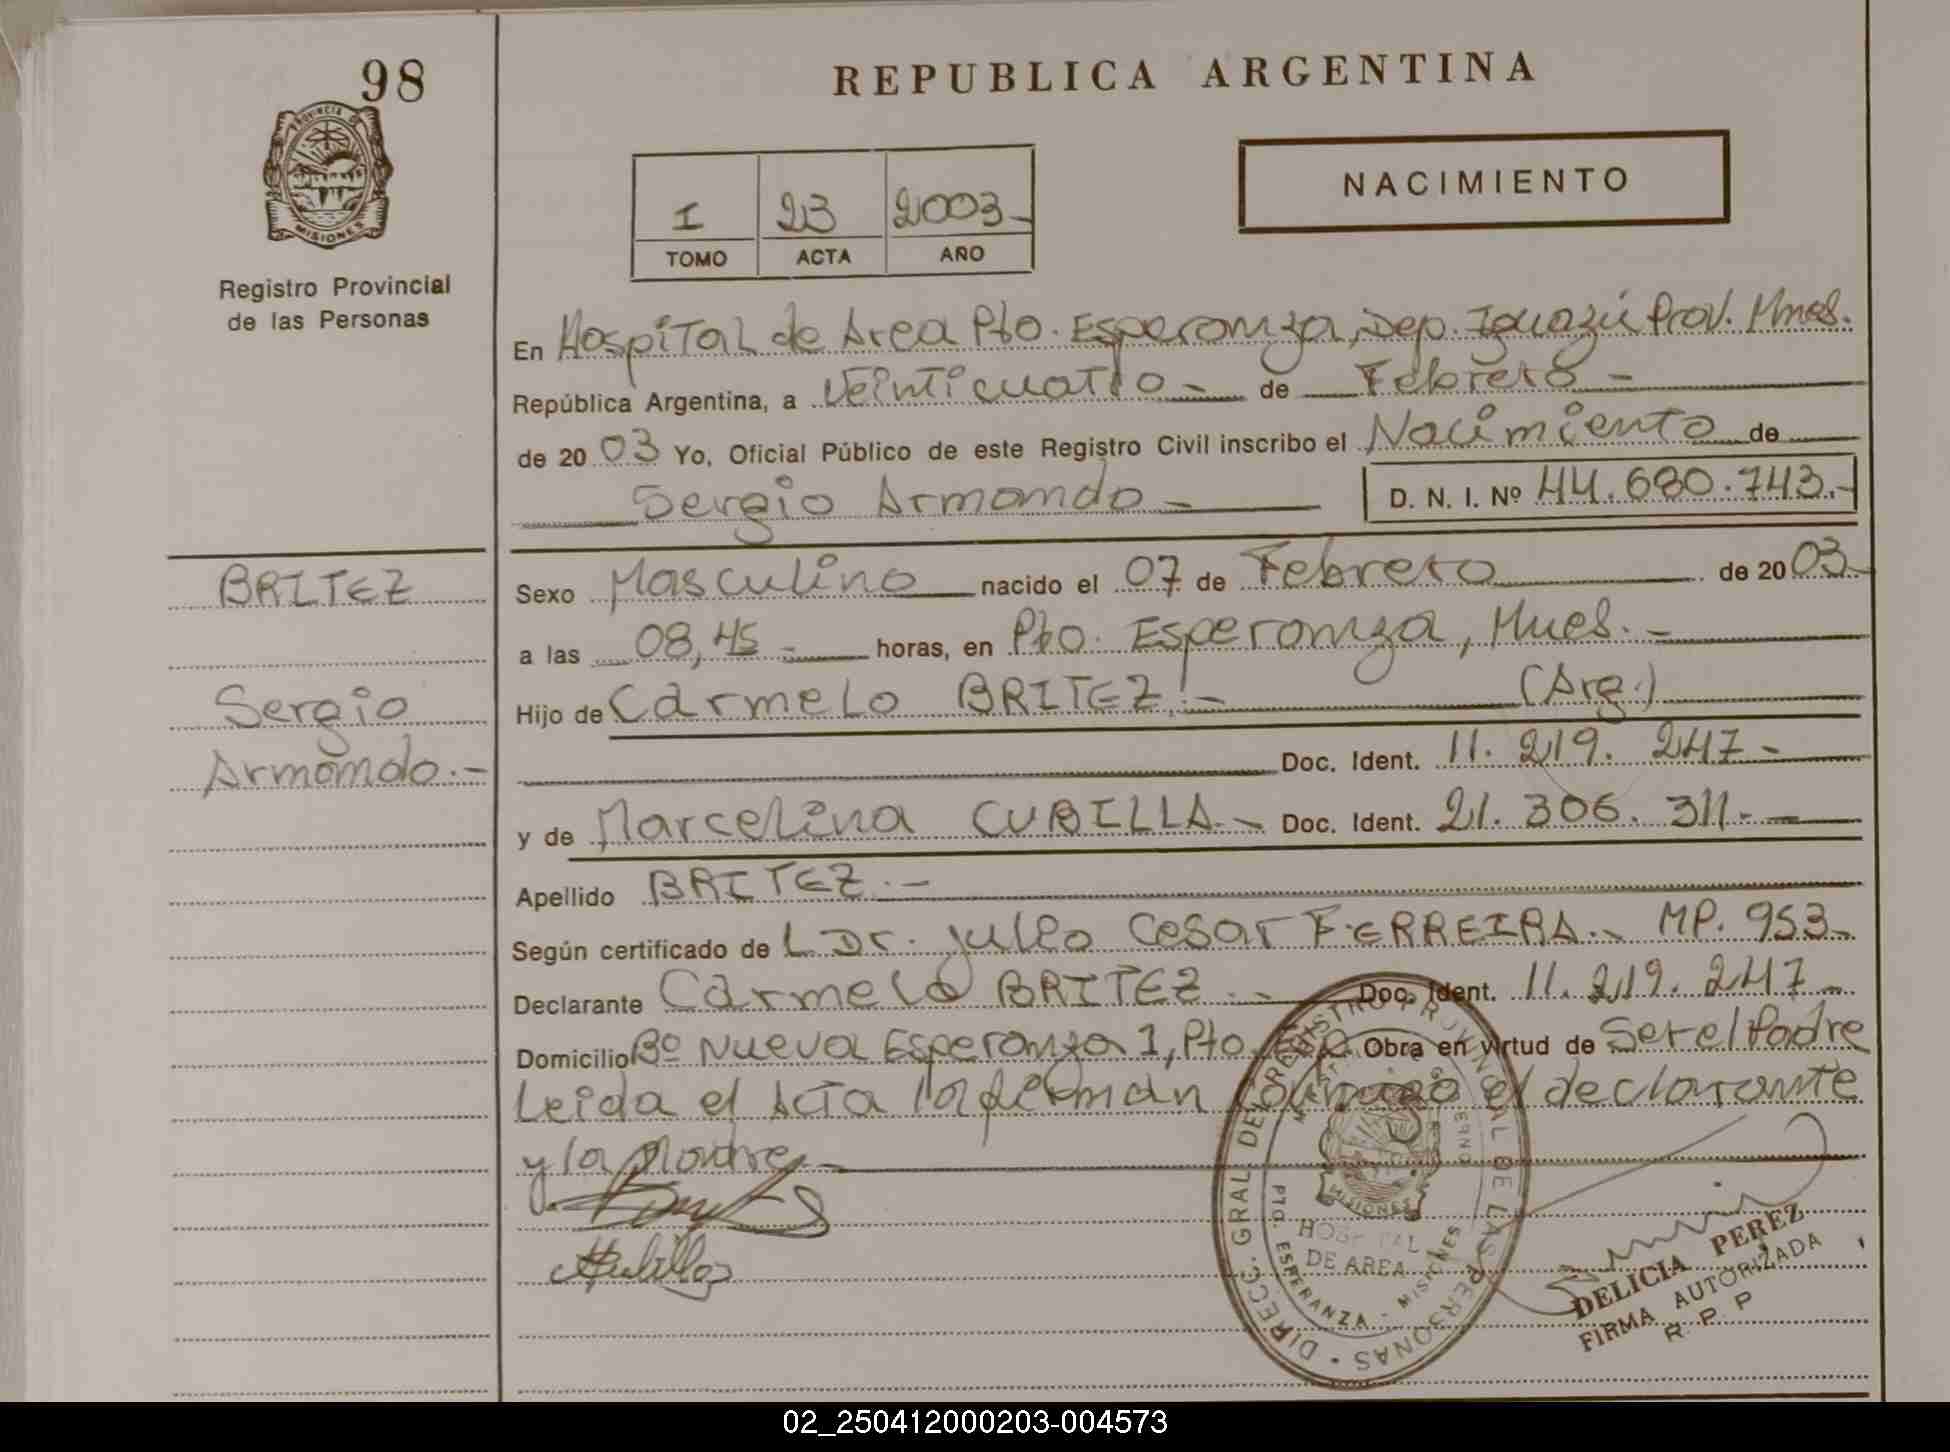 98
PROVINCIA DE
MISIONES
Registro Provincial
de las Personas
REPUBLICA ARGENTINA
I 23 2003-
TOMO ACTA AÑO
NACIMIENTO
En Hospital de Area Pto. Esperanza, Dep. Iguazú Prov. Mnes.
República Argentina, a Veinticuatro - de Febrero -
de 20 03 Yo, Oficial Público de este Registro Civil inscribo el Nacimiento de
Sergio Armando - D. N. I. Nº 44.680.743.-
BRITEZ
Sergio
Armando.-
Sexo Masculino nacido el 07 de Febrero de 20 03-
a las 08,45 - horas, en Pto. Esperanza, Mnes. -
Hijo de Carmelo BRITEZ.- (Arg.)
Doc. Ident. 11. 219. 247 -
y de Marcelina CUBILLA.- Doc. Ident. 21. 306. 311.-
Apellido BRITEZ.-
Según certificado de L Dr. Julio Cesar FERREIRA.- MP. 953-
Declarante Carmelo BRITEZ.- Doc. Ident. 11. 219. 247 -
Domicilio Bº Nueva Esperanza 1, Pto. Esp. Obra en virtud de Ser el Padre
Leida el Acta la firman conmigo el declarante
y la Madre -
DIRECC. GRAL. DEL REGISTRO PROVINCIAL DE LAS PERSONAS
MISIONES
HOSPITAL
DE AREA
PTO. ESPERANZA - MISIONES
DELICIA PEREZ
FIRMA AUTORIZADA
R. P. P
02_250412000203-004573